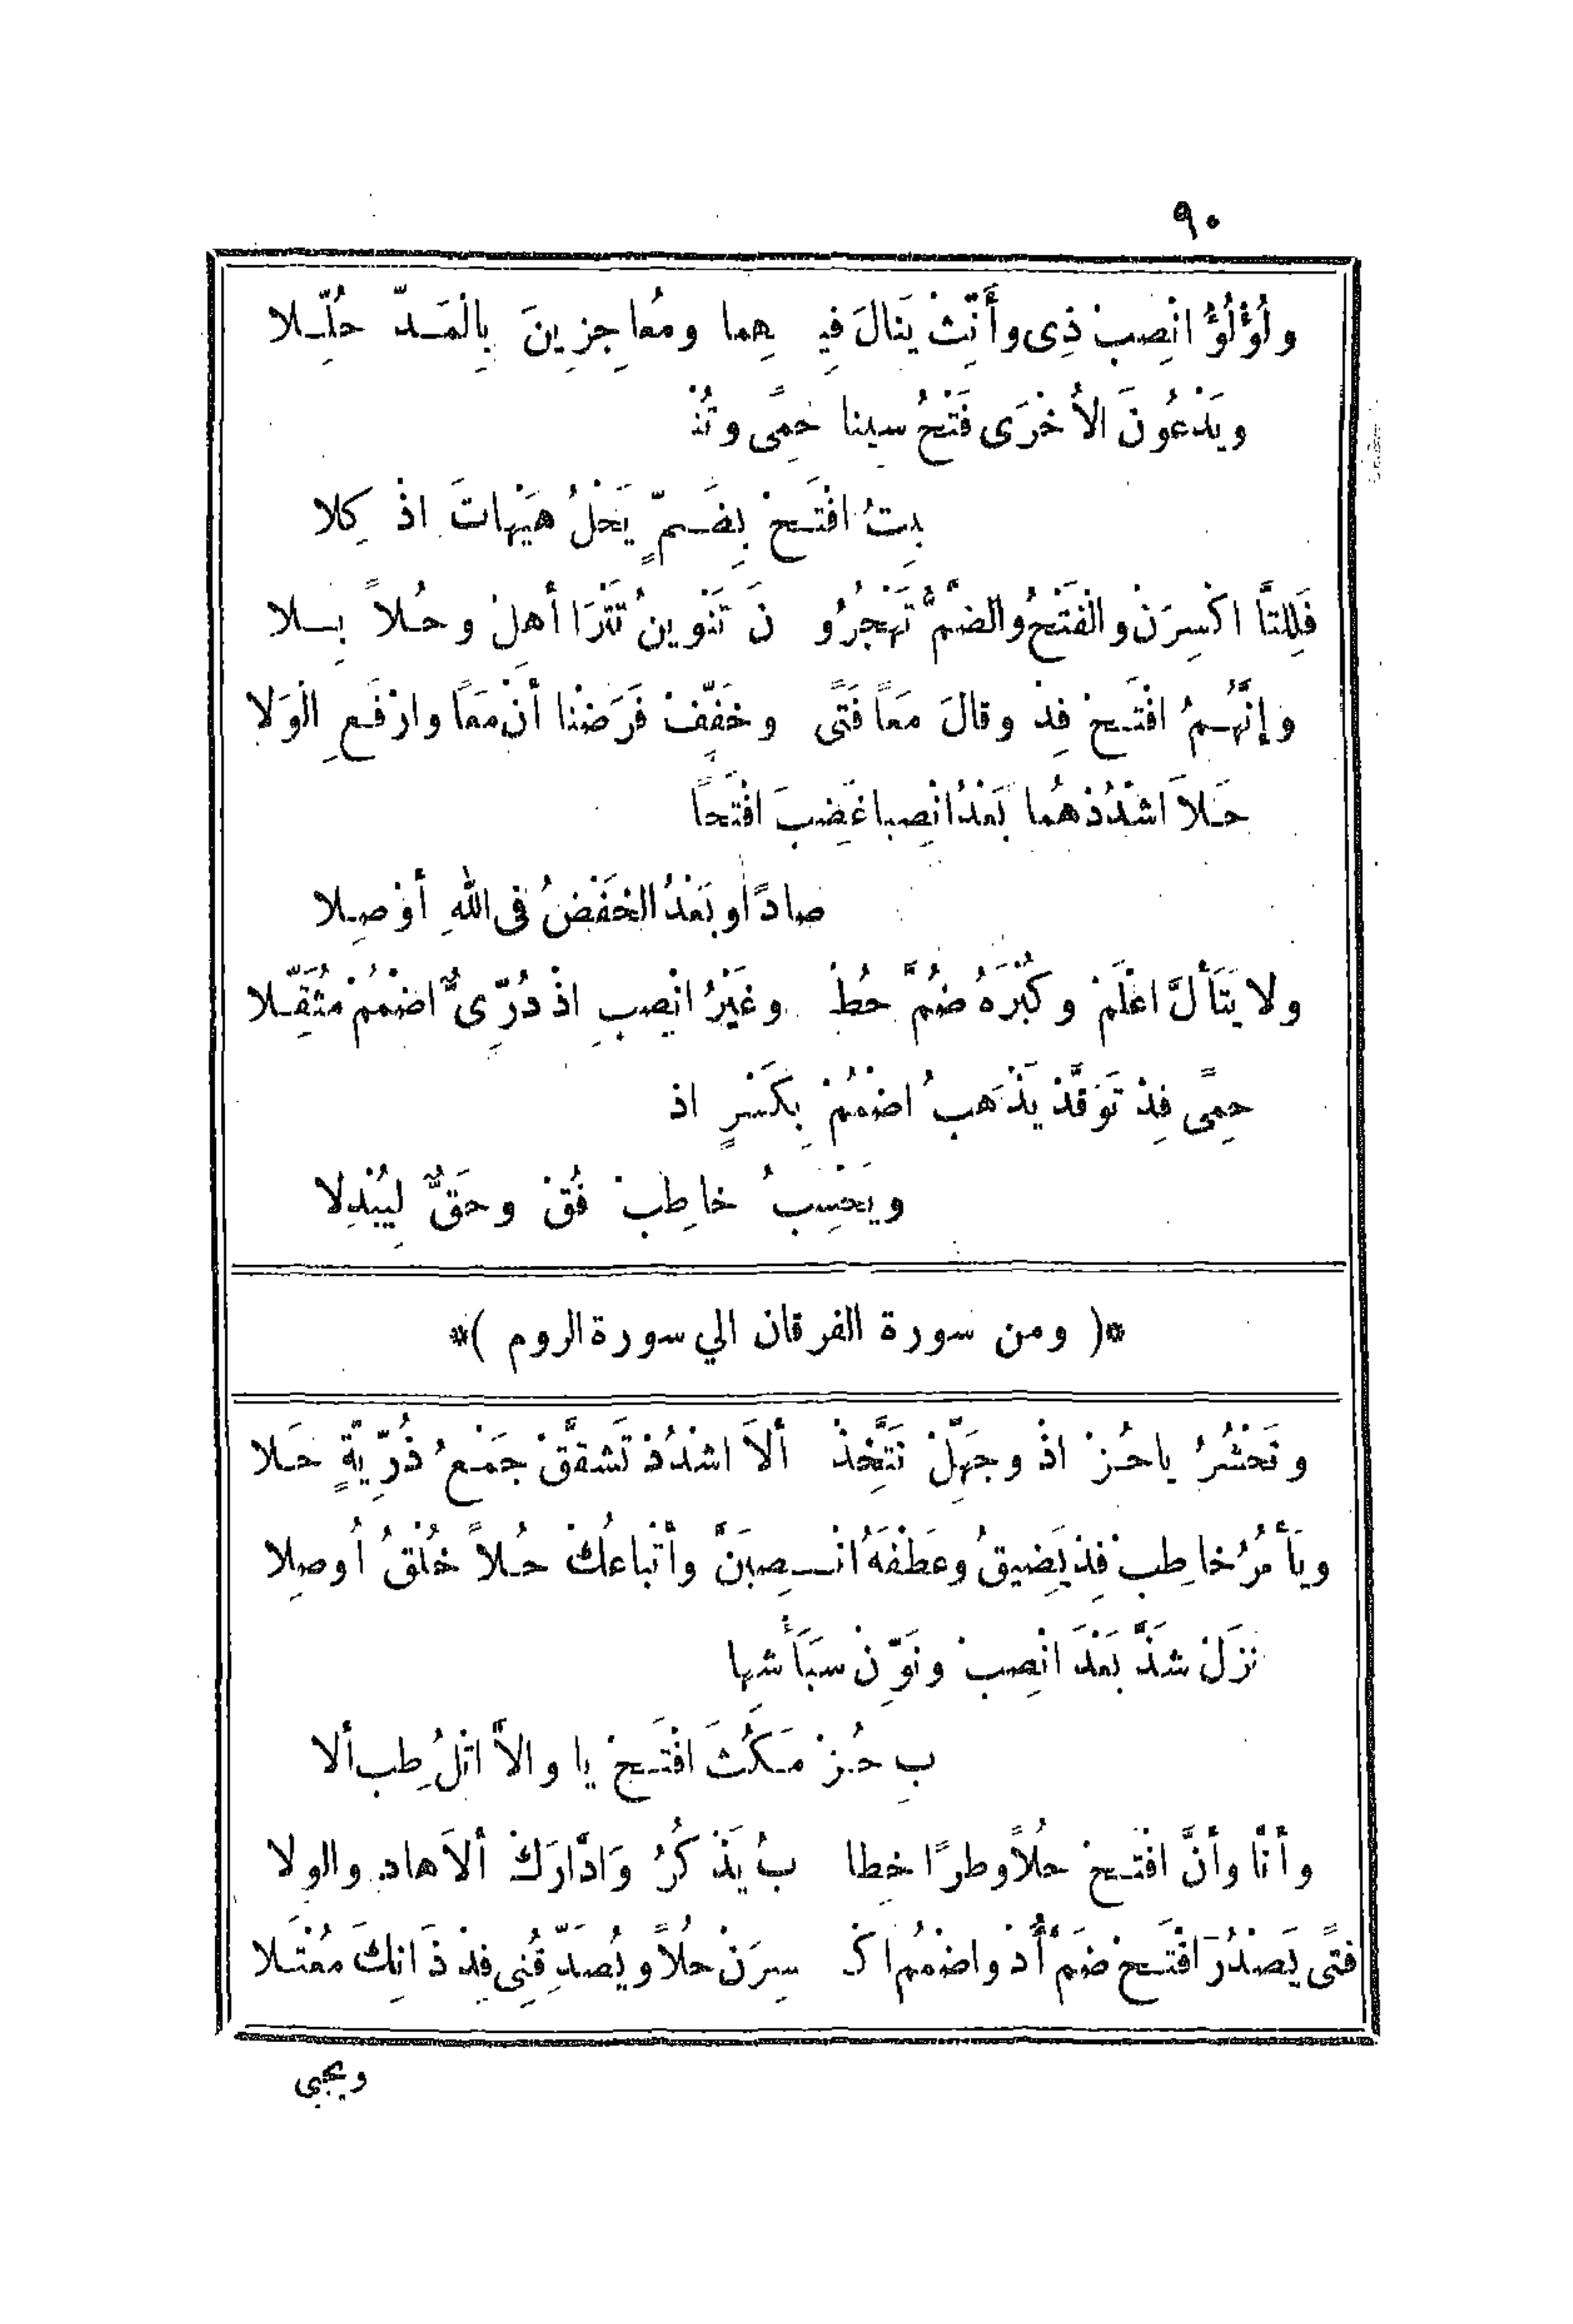 ٩٠
ولُؤْلُؤُ انْصِبْ ذِى وأَنِّثْ يَنَالَ فِيـ هِما ومُعاجِزِينَ بِالْمَـدِّ حُلِّـلا
ويَدْعُونَ الأُخْرَى فَتْحُ سِينا حِمًى وتُنْـ
بِتُ افْتَـحْ بِضَـمٍّ يَحْلُ هَيْهاتَ اذْ كِلا
فَلِلتَّا اكْسِرَنْ والْفَتْحُ والضَّمُّ تَهْجُرُو نَ تَنْوِينُ تَتْرَا أهلْ وحُـلاً بِـلا
وإِنَّهُـمُ افْتَـحْ فِدْ وقالَ مَعاً فَتًى وخَفِّفْ فَرَضْنا أنْ مَعاً وارْفَعِ الْوَلا
حَـلاَ اشْدُدْهُما بَعْدُ انْصِبا غَضِبَ افْتَحاً
صاداً وبَعْدُ الخَفْضُ فى اللهِ أوْصِلا
ولا يَتَأَلَّ اعْلَمْ وكُبْرَهُ ضُمَّ حُطْ وغَيْرُ انْصِبِ اذْ دُرِّىٌّ اضْمُمْ مُثَقِّـلا
حِمًى فِدْ تَوَقَّدْ يَذْهَبُ اضْمُمْ بِكَسْرٍ اذ
ويَحْسِبُ خاطِبْ فُقْ وحَقٌّ لِيُبْدِلا
*( ومن سورة الفرقان الي سورة الروم )*
ونَحْشُرُ يا حُـزْ اذْ وجَهِّلْ نَتَّخِذْ ألاَ اشْدُدْ تَشَقَّقْ جَمْعُ ذُرِّيَّةٍ حَـلا
ويَأْمُرُ خاطِبْ فِدْ يَضِيقُ وعَطْفَهُ انْـصِبَنَّ وأتْباعُكْ حُـلاً خُلْقُ أُوصِلا
نَزَلْ شَدَّ بَعْدَ انْصِبْ ونَوِّنْ سَبَأْ شِها
بِ حُـزْ مَـكُثَ افْتَـحْ يا والاَّ اتْلُ طِب ألا
وأنَّا وأنَّ افْتَـحْ حُلاً وطراً خِطا بُ يَذْكُرُ وَادَّارَكْ ألاَ هاد والوِلا
فتًى يَصْدُرَ افْتَـحْ ضَمَّ أُدْ واضْمُمُ اكْـ سِرَنْ حُلاً ويُصَدِّقْنِى فِدْ ذَانِكَ مُعْتَـلا
ويجبي